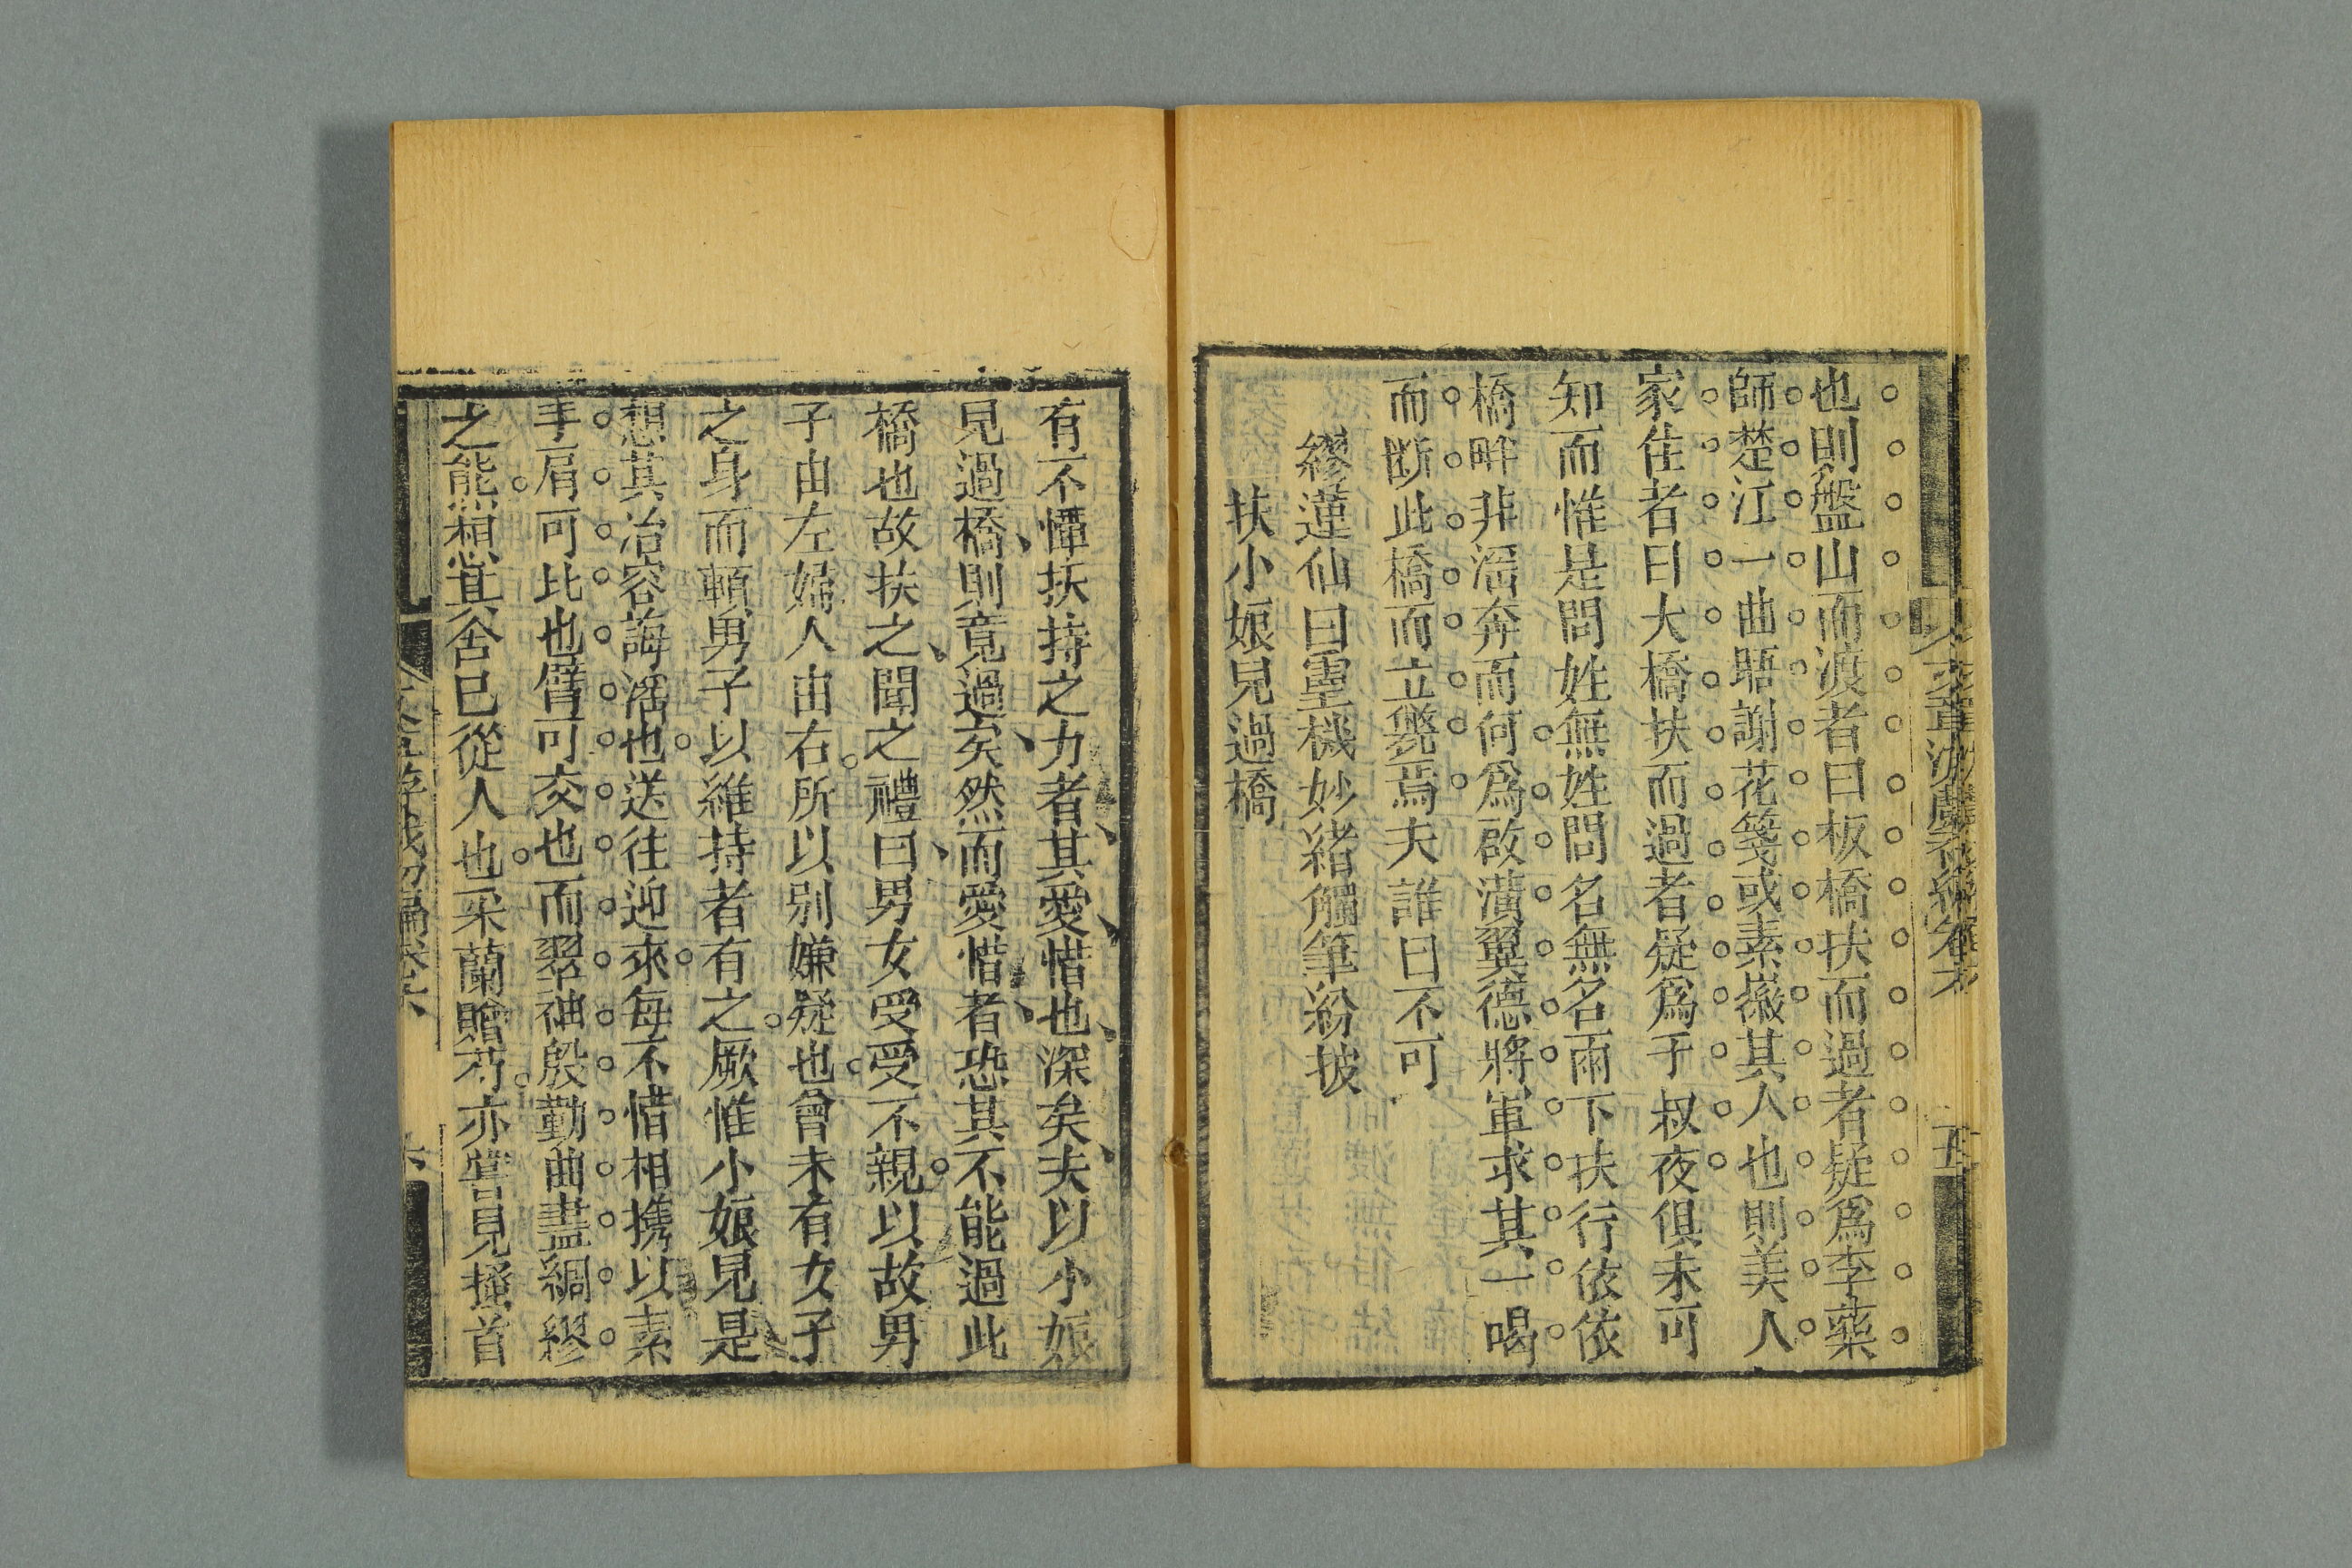 也則盤山而渡者曰板橋扶而過者疑爲李藥
師楚江一曲晤謝花箋或素嶶其人也則美人
家住者曰大橋扶而過者疑爲于叔夜俱未可
知而惟是問姓無姓問名無名雨下扶行依依
橋畔非淊奔而何爲啟潢翼德將軍求其一喝
而斷此橋而立斃焉夫誰曰不可
繆蓮仙曰靈機妙緒觸筆紛披
扶小娘兒過橋
有不憚扶持之力者其愛惜也深矣夫以小娘
兒過橋則竟過矣然而愛惜者恐其不能過此
橋也故扶之聞之禮曰男女受受不親以故男
子由左婦人由右所以别嫌疑也曾未有女子
之身而頼男子以維持者有之厥惟小娘兒是
想其冶容誨淫也送往迎來每不惜相携以素
手肩可比也臂可交也而翠袖殷勤曲盡綢繆
之能想其舍己從人也采蘭贈芍亦嘗見搔首